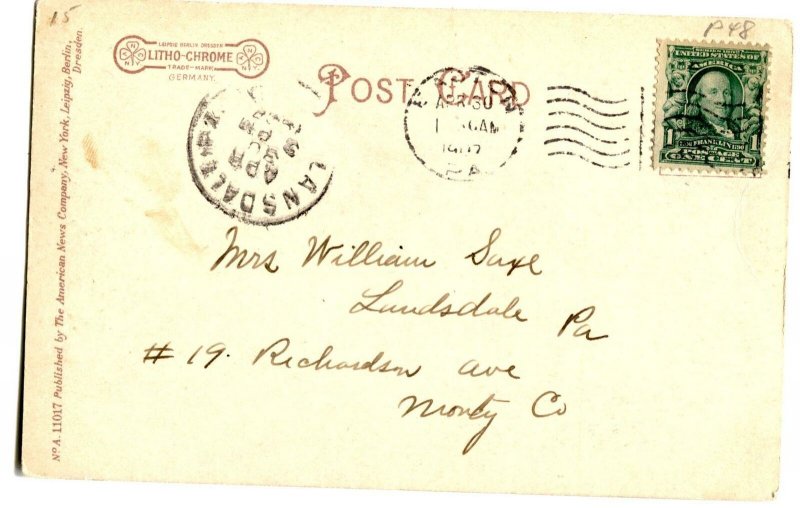 15
P48
LEIPZIG BERLIN DRESDEN
LITHO-CHROME
TRADE-MARK
GERMANY.
POST CARD
SERIES 1902
UNITED STATES OF
AMERICA
FRANKLIN
1 POSTAGE
ONE CENT
APR 30
AM
LANSDALE
APR
PM
Mrs William Saxe
Landsdale
Pa
# 19. Richardson ave
Monty Co
No A. 11017 Published by The American News Company, New York, Leipzig, Berlin,
Dresden.